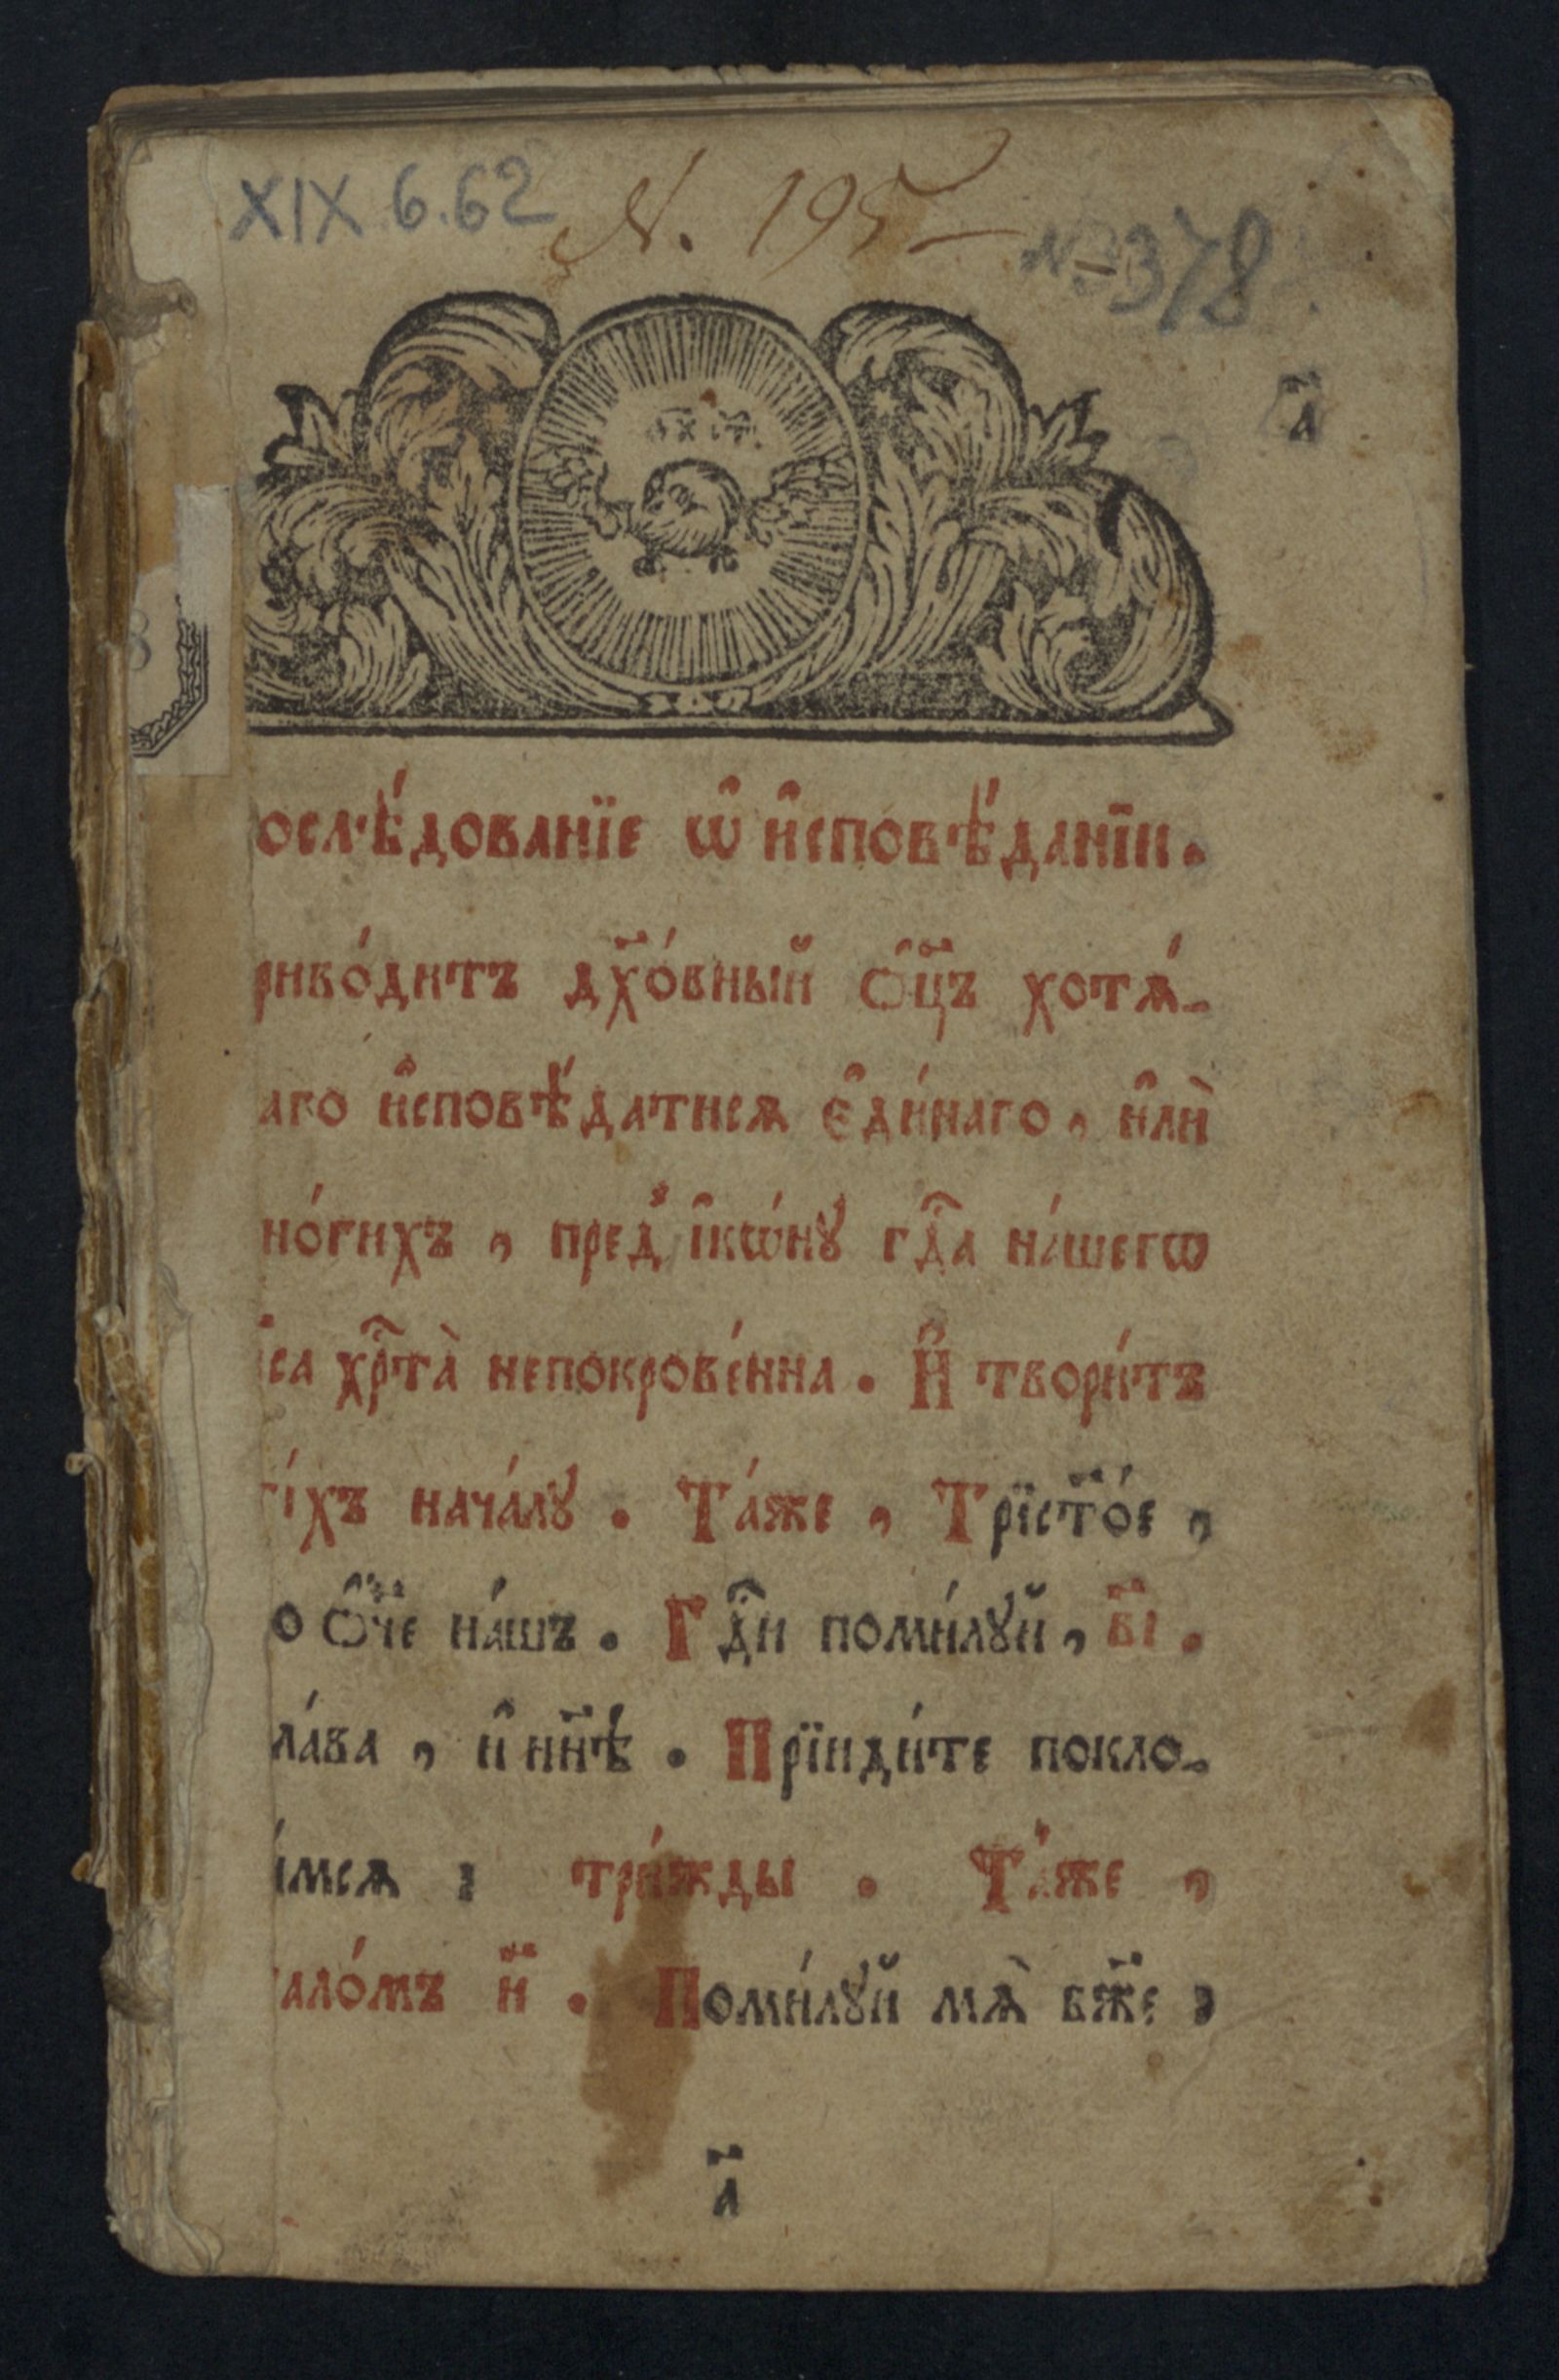 XIX 6.62 N. 195 № 378
а҃
ослѣ́дованїе ѡ҆ и҆сповѣ́данїи.
риво́дитъ дх҃о́вный ѻ҆ц҃ъ хотѧ́-
аго и҆сповѣ́датисѧ є҆ди́наго, и҆лѝ
но́гихъ, пред̾ і҆кѡ́нꙋ гдⷭ҇а на́шегѡ
іса хрⷭ҇та̀ непокрове́нна. И҆ твори́тъ
і́хъ нача́лꙋ. Та́же, Трїст҃о́е,
о Ѻ҆́ч҃е на́шъ. Гдⷭ҇и поми́лꙋй, в҃і.
ла́ва, и҆ нн҃ѣ. Прїиди́те покло-
имсѧ: три́жды. Та́же,
ало́мъ н҃. Поми́лꙋй мѧ̀ бж҃е:
а҃